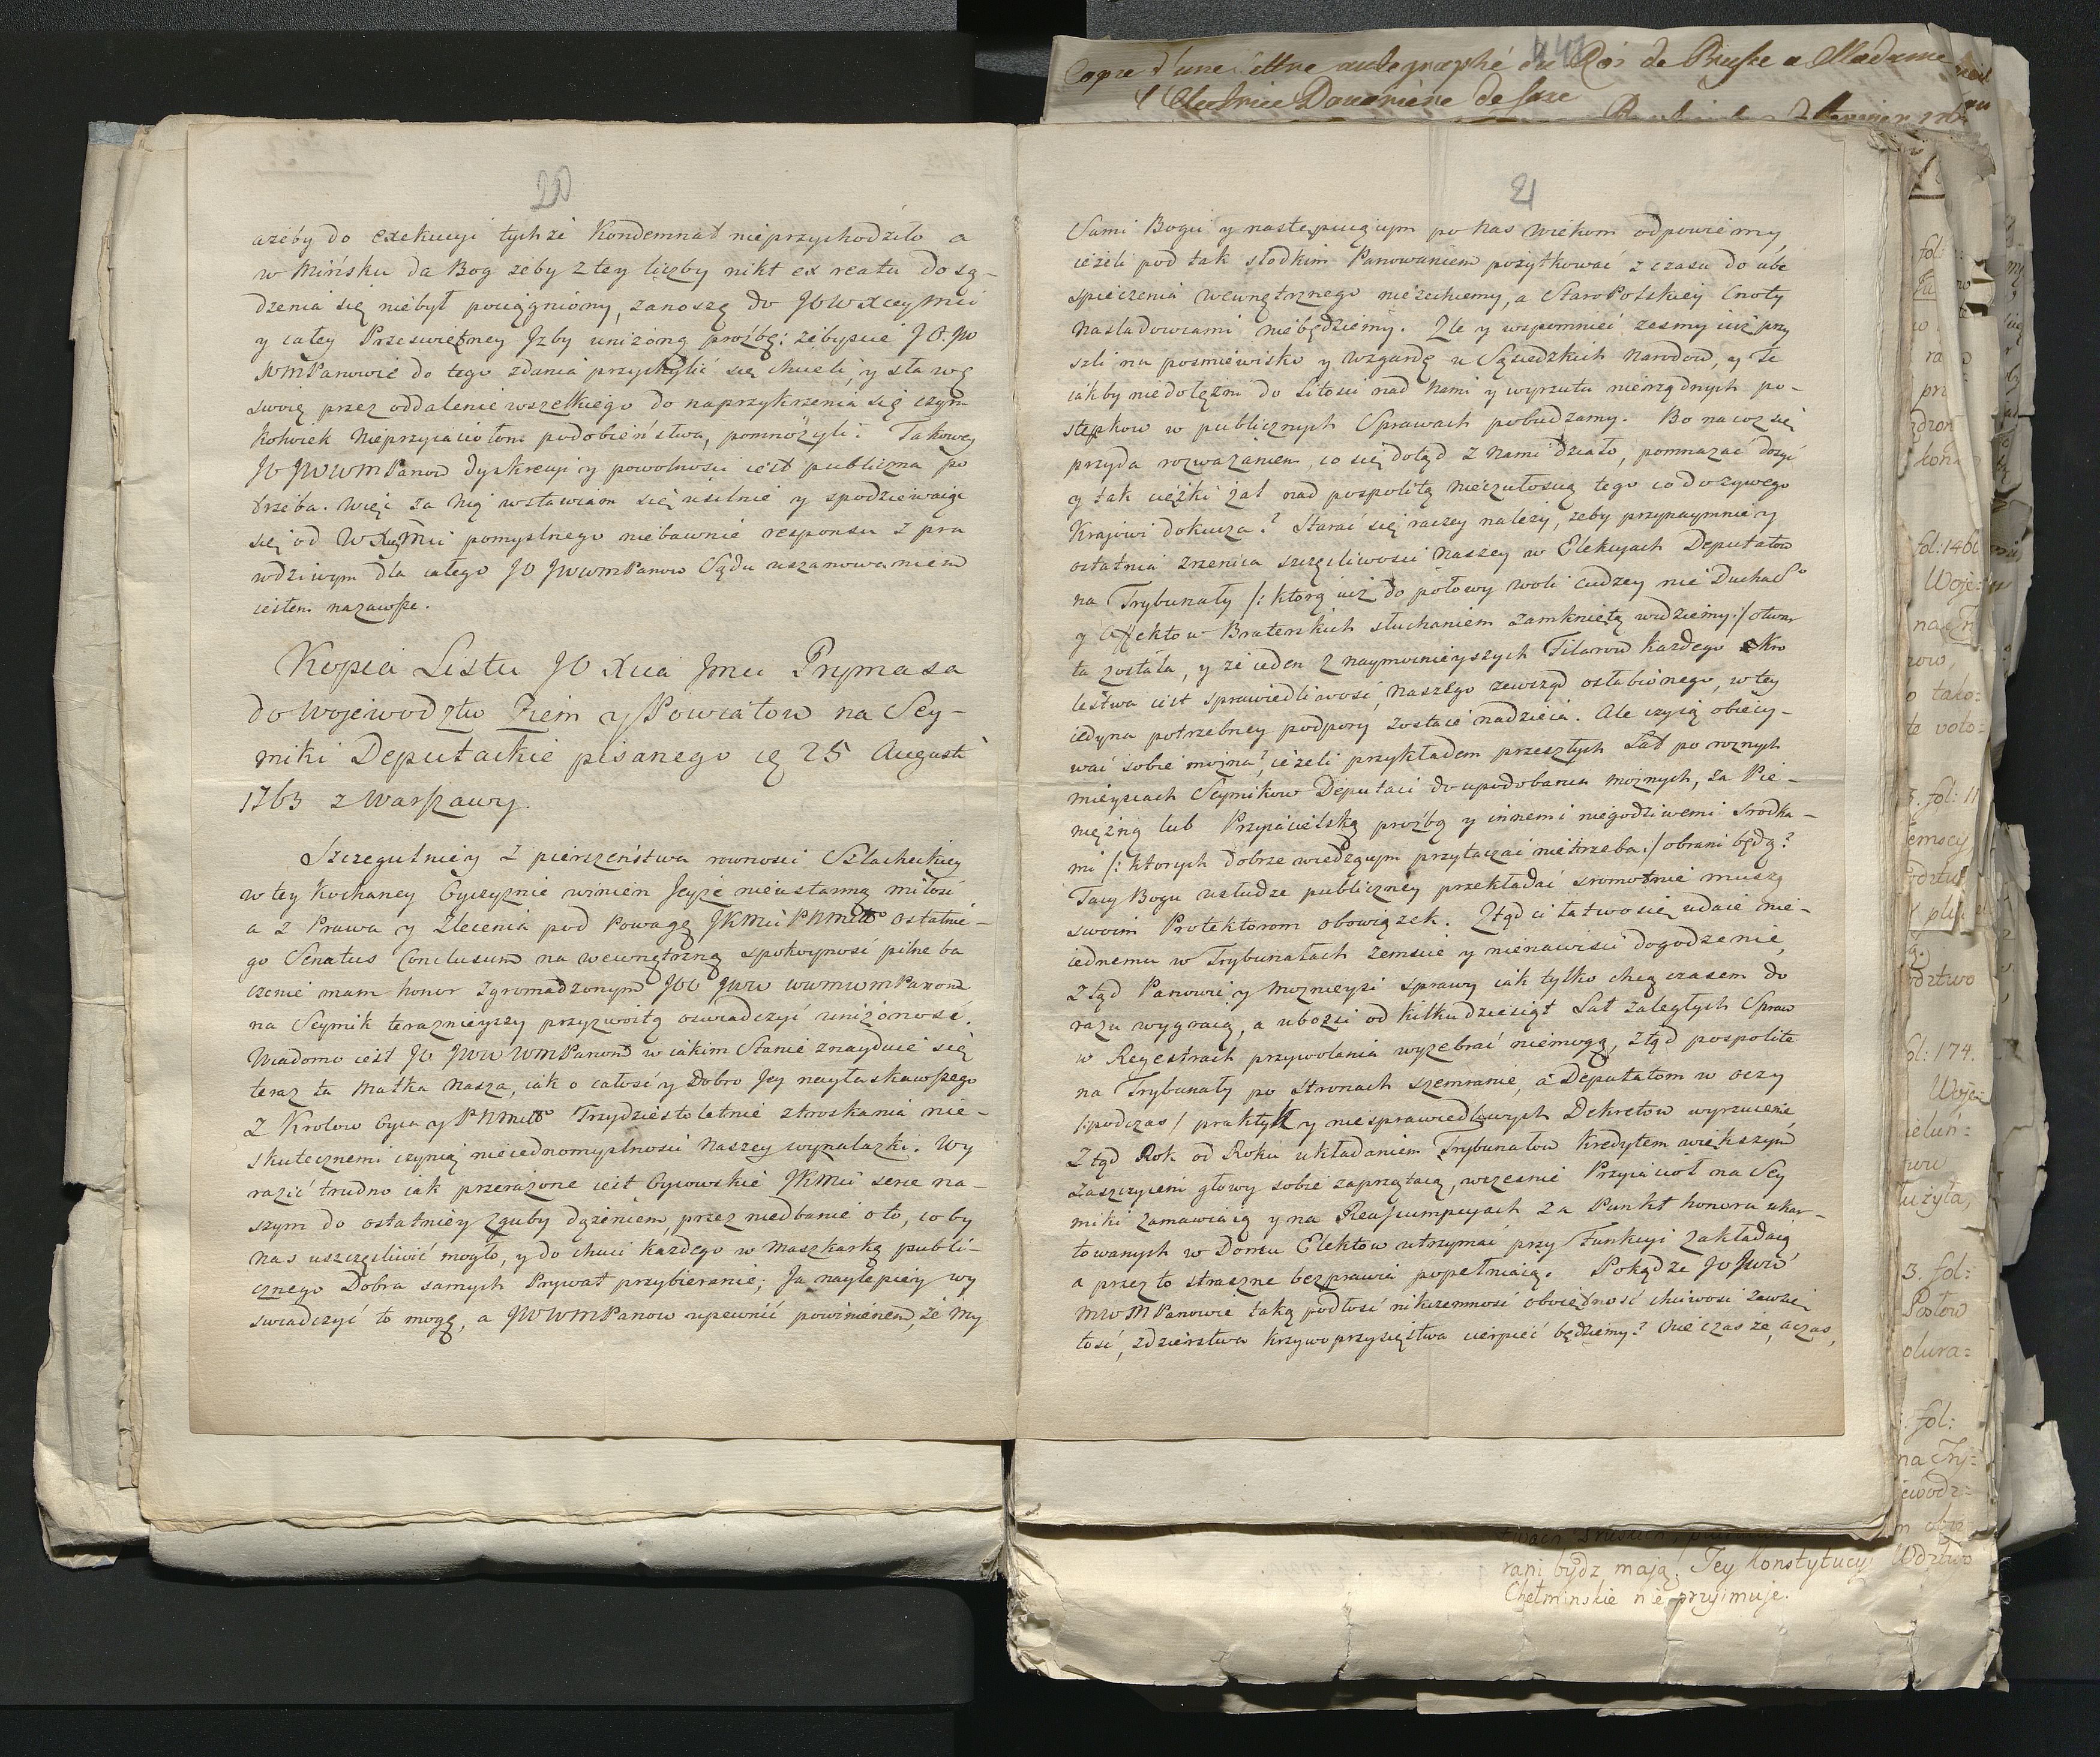 Copie d'une lettre autographe du Roi de Prusse a Madame
l'Electrice Douairiere de Saxe
20
ażeby do exekucyi tychże Kondemnat nieprzychodziło a
w Mińsku da Bog żeby z tey liczby nikt ex reatu do są-
dzenia się niebył pociągniony, zanoszę do JOWXceyMci
y całey Prześwietney Jzby uniżoną prożbę: żebyście JO. JW
WMPanowie do tego zdania przychylić się chcieli, y sławę
swoię przez oddalenie wszelkiego do naprzykrzenia się czym
kolwiek Nieprzyiaciołom podobieństwa, pomnożyli. Takowey
JO JWWMPanow dyskrecyi y powolności iest publiczna po
trzeba. Więc za Nią wstawiam się usilnie y spodziewaiąc
się od WXcyMci pomyslnego niebawnie responsu z pra
wdziwym dla całego JO JWWMPanow Sądu uszanowaniem
iestem nazawsze.
Kopia Listu JO Xcia Jmci Prymasa
do Wojewodztw Ziem y Powiatow na Sey-
miki Deputackie pisanego die 25 Augusti
1763 z Warszawy.
Szczegulniey z pierszeństwa rowności Szlacheckiey
w tey Kochaney Oyczyznie winien Jeyże nieustanną miłość
a z Prawa y Zlecenia pod Powagę JKMci PNMłło ostatnie-
go Senatus Conclusum na wewnętrzną spokoyność pilne ba
czenie mam honor Zgromadzonym JOO JWW WWMWMPanom
na Seymik terazniejszy przyzwoitą oswiadczyć uniżoność.
Wiadomo iest JO JWW WMPanom w iakim Stanie znayduie się
teraz ta Matka Nasza, iak o całość y Dobro Jey nayłaskawszego
z Krolow Oyca y PNMłło Trzydziestoletnie ztroskania nie-
skutecznemi czynią nieiednomyslności Naszey wynalazki. Wy
razić trudno iak przerażone iest Oycowskie JKMci serce na-
szym do ostatniey zguby dążeniem, przez niedbanie o to, co by
nas uszczęsliwić mogło, y do chuci każdego w maszkarkę publi-
cznego Dobra samych Prywat przybieranie; Ja naylepiey wy
swiadczyć to mogę, a JWWMPanow upewnić powinienem, że My
21
Sami Bogu y następuiącym po Nas wiekom odpowiemy,
ieżeli pod tak słodkim Panowaniem pożytkować z czasu do ube
spieczenia wewnętrznego niezechcemy, a StaroPolskiey Cnoty
Nasladowcami niebędziemy. Zle y wspomnieć żesmy już przy
szli na posmiewisko y wzgardę u Sąsiedzkich Narodow, y że
iakby niedołęzni do Litości nad Nami y wyrzutu nierządnych po-
stępkow w publicznych Sprawach pobudzamy. Bo na coż się
przyda rozważaniem, co się dotąd z Nami działo, pomnażać dosyć
y tak ciężki żal nad pospolitą nieczułością tego co do żywego
Krajowi dokucza? Starać się raczey należy, żeby przynaymniey
ostatnia zrzenica szczęsliwości Naszey w Elekcyach Deputatow
na Trybunały /: ktorą iuż do połowy woli cudzey nie Ducha S°
y Affektow Braterskich słuchaniem zamkniętą widziemy :/ otwar
ta została, y że ieden z naymocnieyszych Filarow każdego Kro
lestwa iest sprawiedliwość, Naszego zewsząd osłabionego, w tey
iedyna potrzebney podpory zostaie nadzieia. Ale czyią obiecy-
wać sobie można, ieżeli przykładem przeszłych Lat po rożnych
mieyscach Seymikow Deputaci do upodobania możnych, za Pie-
niężną lub Przyiacielską prożbą y innemi niegodziwemi srodka-
mi /: ktorych dobrze wiedzącym przytaczać nietrzeba :/ obrani będą?
Tacy Bogu usłudze publiczney przekładać sromotnie muszą
swoim Protektorom obowiązek. Ztąd ci łatwo się udaie nie-
iednemu w Trybunałach zemscie y nienawisci dogodzenie,
Ztąd Panowie y Możnieysi sprawy iak tylko chcą czasem do
razu wygraią, a ubożsi od kilkudziesiąt Lat zaległych Spraw
w Regestrach przywołania wyżebrać niemogą, Ztąd pospolite
na Trybunały po Stronach szemranie, a Deputatom w oczy
/:podczas/ praktyk y niesprawiedliwych Dekretow wyrzucenie,
Ztąd Rok od Roku układaniem Trybunałow kredytem większym
Zaszczyceni głowy sobie zaprzątaią, wczesnie Przyiacioł na Sey
miki zamawiaią y na Reassumpcyach za Punkt honoru ukar-
towanych w Domu Elektow utrzymać przy Funkcyi zakładaią
a przez to straszne bezprawia popełniaią. Pokądże JO JWW
MWMPanowie taką podłość nikczemność oboiętność chciwość zawzię
tość, zdzierstwa krzywoprzysięstwa cierpieć będziemy? Nie czas że, a czas,
fol:1461
Woje:
fol: 174.
Woje=
3. fol:
Posłow
rani bydz mają. Tey Konstytucyi Wdztwo
Chełminskie nie przyimuje.